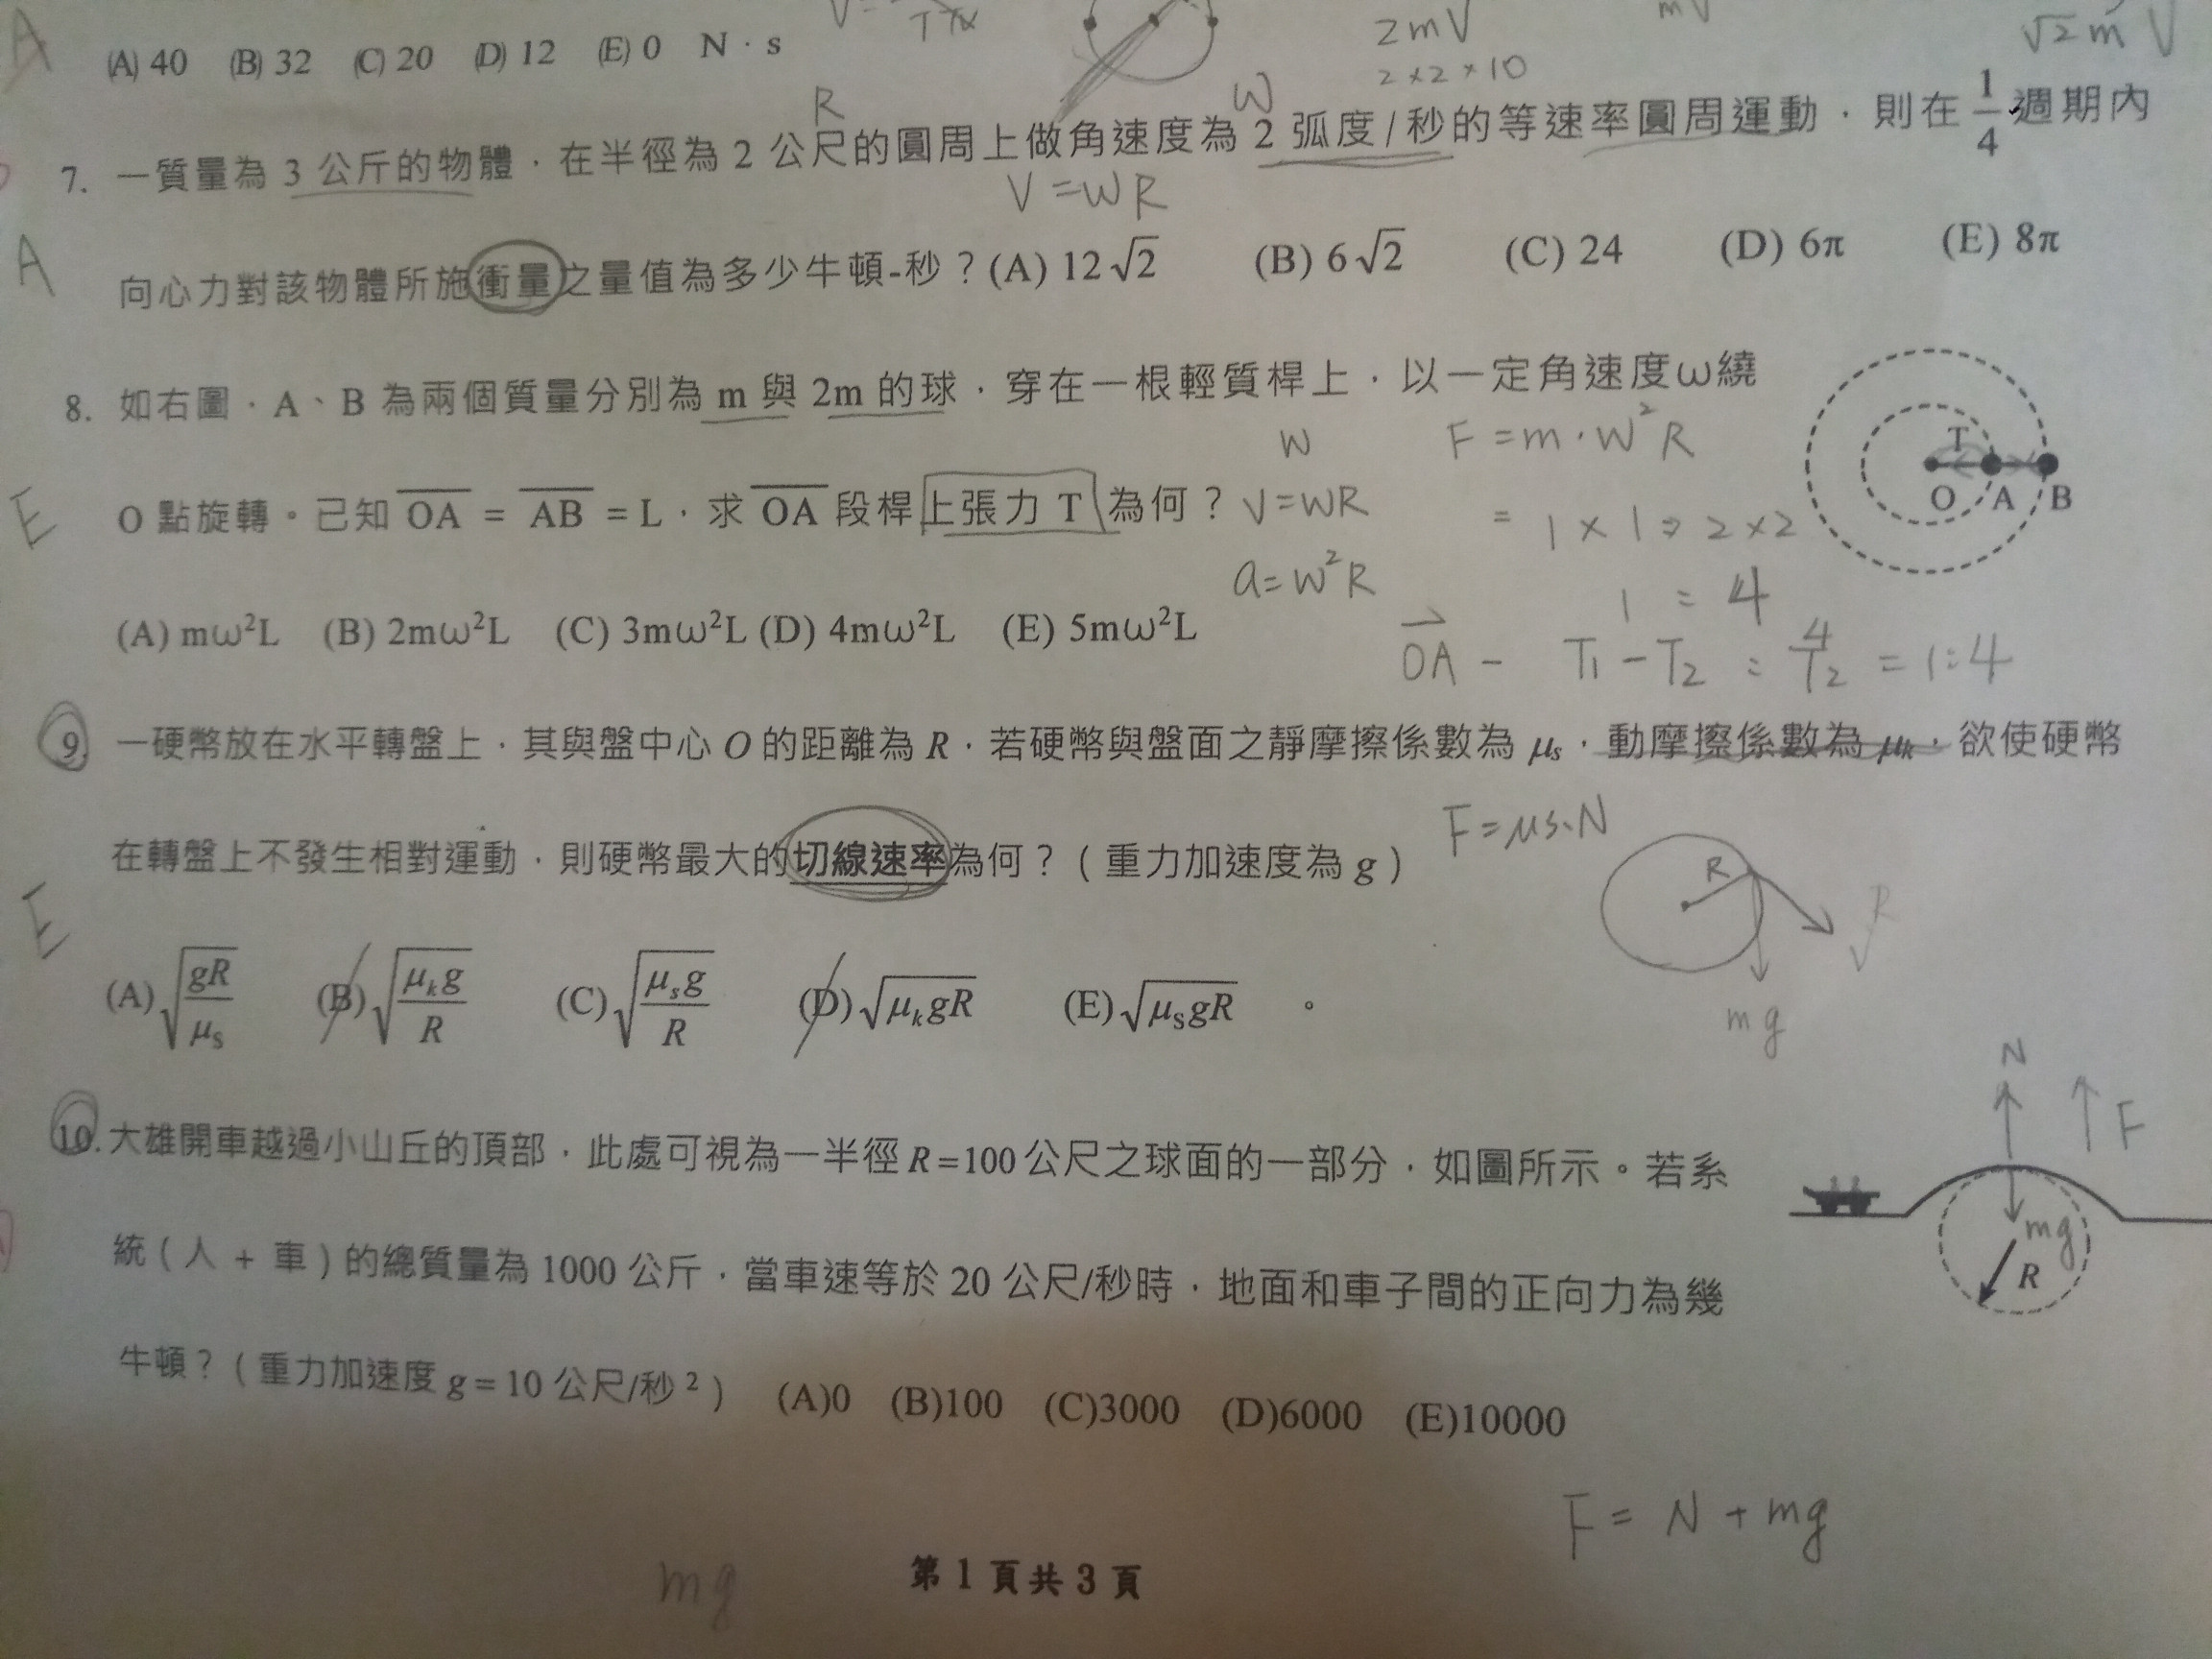 A
V=
2mV
mV
√2 m V
(A) 40 (B) 32 (C) 20 (D) 12 (E) 0 N · s
2×2×10
R
W
7. 一質量為 3 公斤的物體，在半徑為 2 公尺的圓周上做角速度為 2 弧度/秒的等速率圓周運動，則在 1/4 週期內
V=WR
A
向心力對該物體所施衝量之量值為多少牛頓-秒？(A) 12√2 (B) 6√2 (C) 24 (D) 6π (E) 8π
8. 如右圖，A、B 為兩個質量分別為 m 與 2m 的球，穿在一根輕質桿上，以一定角速度ω繞
W
F=m·W²R
T
O A B
E
O 點旋轉。已知 OA = AB = L，求 OA 段桿上張力 T 為何？
V=WR
= 1×1:2×2
a=W²R
1 : 4
(A) mω²L (B) 2mω²L (C) 3mω²L (D) 4mω²L (E) 5mω²L
OA - T1-T2 : 4/T2 = 1:4
9. 一硬幣放在水平轉盤上，其與盤中心 O 的距離為 R，若硬幣與盤面之靜摩擦係數為 μs，動摩擦係數為 μk，欲使硬幣
F=μs·N
在轉盤上不發生相對運動，則硬幣最大的切線速率為何？（重力加速度為 g）
R
E
(A)√(gR/μs) (B)√(μkg/R) (C)√(μsg/R) (D)√μkgR (E)√μsgR 。
mg
N
F
10. 大雄開車越過小山丘的頂部，此處可視為一半徑 R=100 公尺之球面的一部分，如圖所示。若系
mg
R
統（人 + 車）的總質量為 1000 公斤，當車速等於 20 公尺/秒時，地面和車子間的正向力為幾
牛頓？（重力加速度 g = 10 公尺/秒²） (A)0 (B)100 (C)3000 (D)6000 (E)10000
F = N + mg
mg
第 1 頁共 3 頁